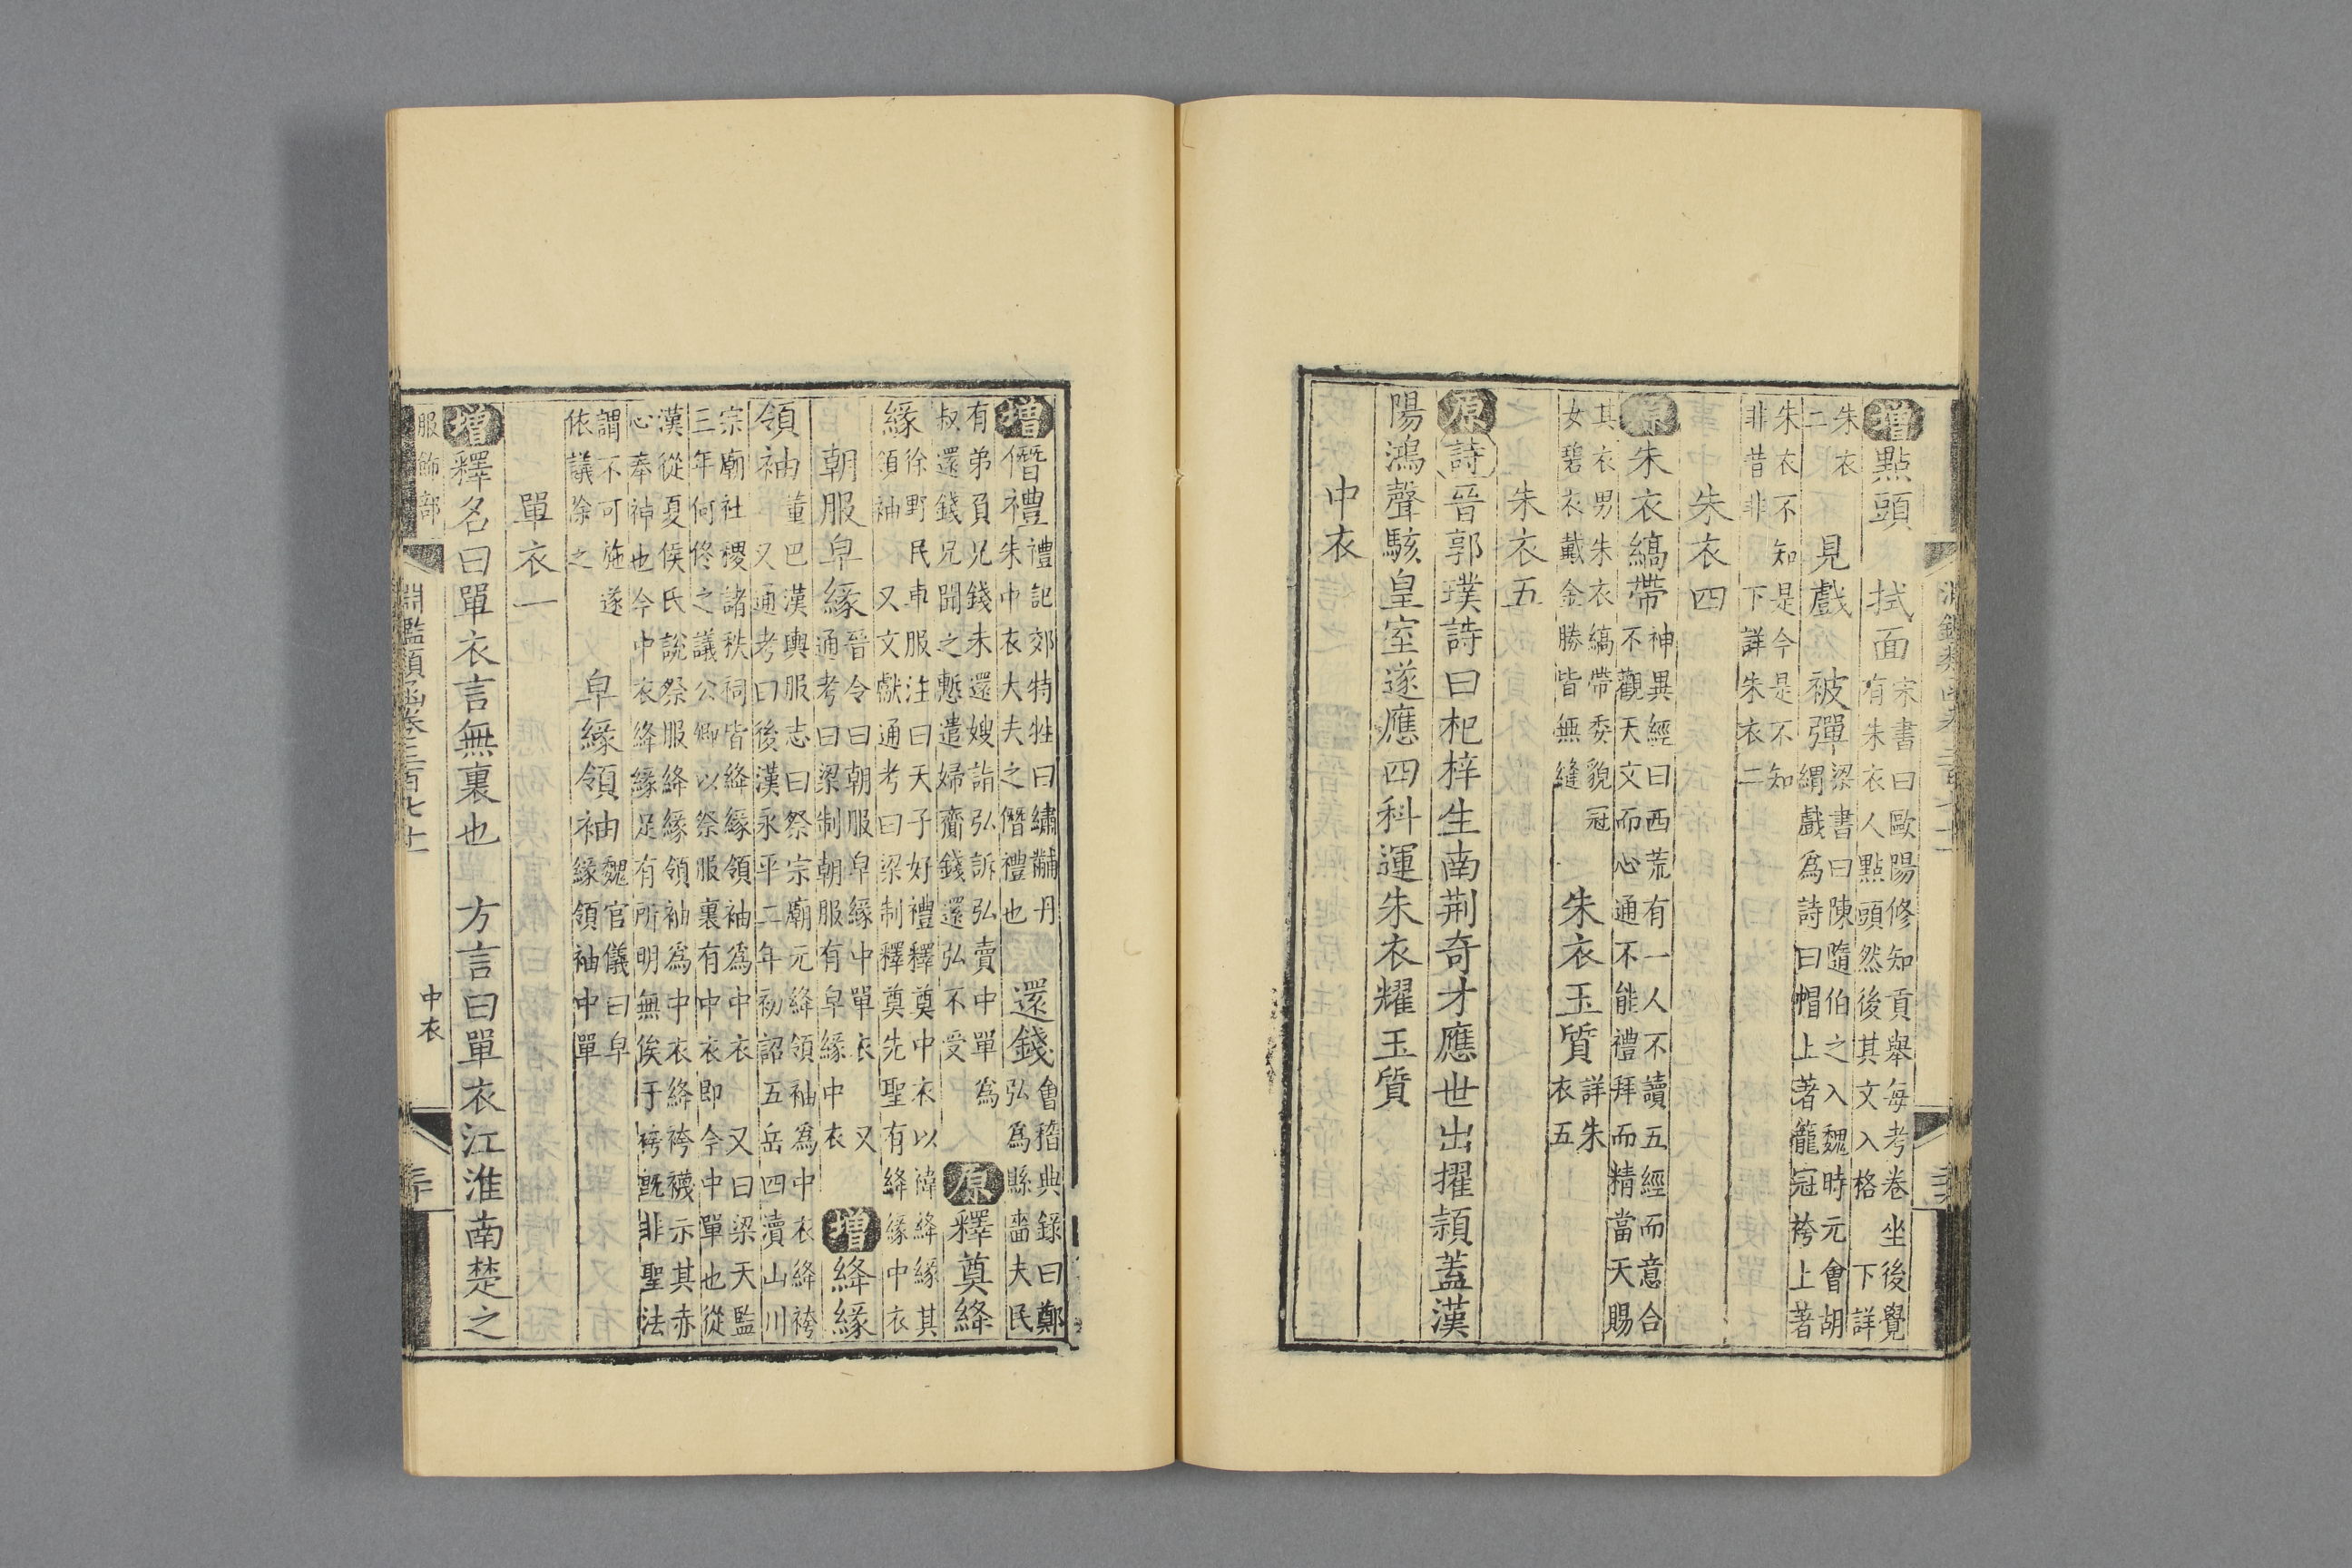 增點頭　拭面宋書曰歐陽修知貢舉每考卷坐後覺
有朱衣人點頭然後其文入格下詳
朱衣
二　見戲　被彈梁書曰陳隨伯之入魏時元會胡
緝戲爲詩曰帽上著籠冠袴上著
朱衣不知是今是不知
非昔非　下詳朱衣二
朱衣四
原朱衣縞帶神異經曰西荒有一人不讀五經而意合
不觀天文而心通不能禮拜而精當天賜
其衣男朱衣縞帶委貌冠
女碧衣戴金勝皆無縫　朱衣玉質詳朱
衣五
朱衣五
原詩晉郭璞詩曰杞梓生南荆奇才應世出擢頴蓋漢
陽鴻聲駭皇室遂應四科運朱衣耀玉質
中衣
增僭禮禮記郊特牲曰繡黼丹
朱中衣大夫之僭禮也　還錢會稽典錄曰鄭
弘爲縣嗇夫民
有弟負兄錢未還嫂詣弘訴弘賣中單爲
叔還錢兄聞之慙遣婦齎錢還弘不受　原釋奠絳
緣徐野民車服注曰天子好禮釋奠中衣以褘絳緣其
領袖　又文獻通考曰梁制釋奠先聖有絳緣中衣
朝服皁緣晉令曰朝服皁緣中單衣　又
通考曰梁制朝服有皁緣中衣　增絳緣
領袖董巴漢輿服志曰祭宗廟元絳領袖爲中衣絳袴
又通考曰後漢永平二年初詔五岳四瀆山川
宗廟社稷諸秩祠皆絳緣領袖爲中衣　又曰梁天監
三年何佟之議公卿以祭服裏有中衣即今中單也從
漢從夏侯氏說祭服絳緣領袖爲中衣絳袴襪示其赤
心奉神也今中衣絳緣足有所明無俟于袴旣非聖法
謂不可施遂
依議除之　皁緣領袖魏官儀曰皁
緣領袖中單
單衣一
增釋名曰單衣言無裏也　方言曰單衣江淮南楚之
服飾部　淵鑑類函卷三百七十一　中衣